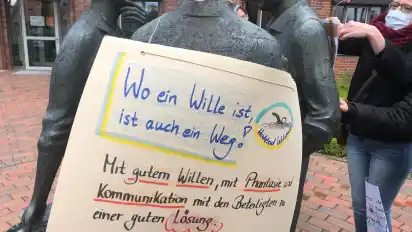 Wo ein Wille ist,
ist auch ein Weg!
Mit gutem Willen, mit Phantasie und
Kommunikation mit den Beteiligten zu
einer guten Lösung.